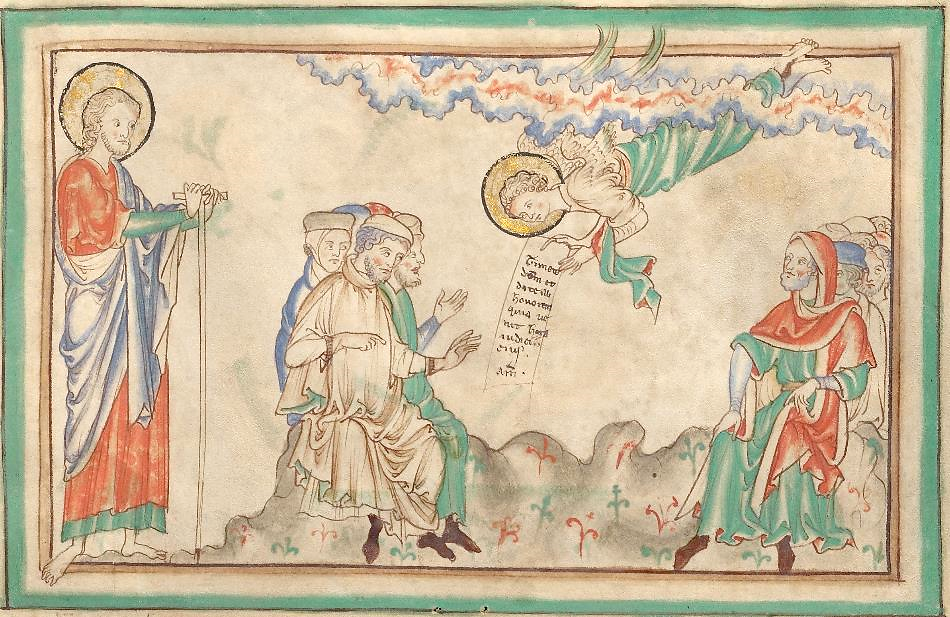 Timete
dn̄m et
date illi
honorem
quia ue
nit hora
iudicii
eius.
am̄.